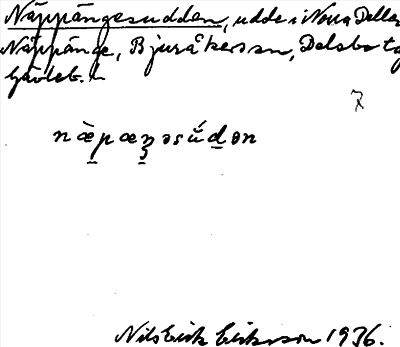 Näppängesudden, udde i Norra Dellen
Näppänge, Bjuråker sn, Delsbo tg
Gävleb. l
7
næ̀pæŋəsúdən
Nils Erik Eriksson 1936.